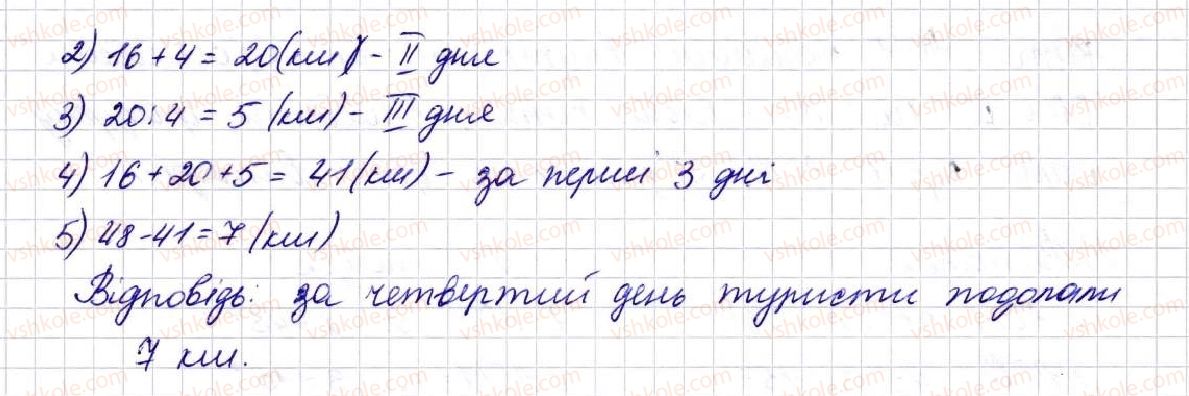 2) 16 + 4 = 20 (км) - II дня
3) 20 : 4 = 5 (км) - III дня
4) 16 + 20 + 5 = 41 (км) - за перші 3 дні
5) 48 - 41 = 7 (км)
Відповідь: за четвертий день туристи подолали
7 км.